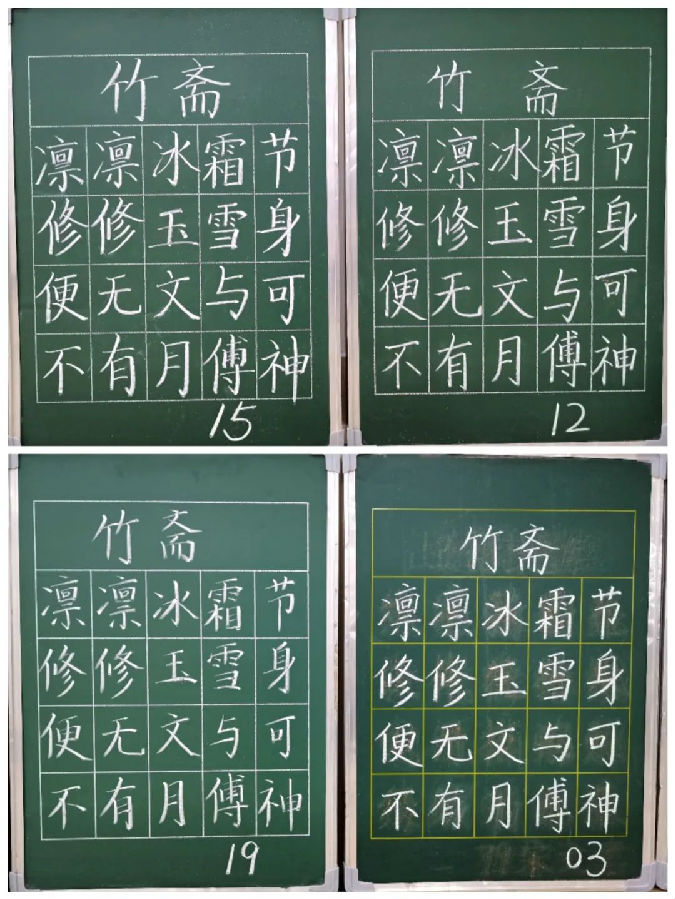 竹斋
凛凛冰霜节
修修玉雪身
便无文与可
不有月傅神
15
竹斋
凛凛冰霜节
修修玉雪身
便无文与可
不有月傅神
12
竹斋
凛凛冰霜节
修修玉雪身
便无文与可
不有月傅神
19
竹斋
凛凛冰霜节
修修玉雪身
便无文与可
不有月傅神
03